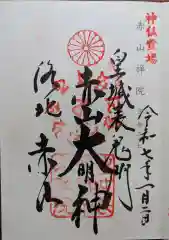 神仏霊場
赤山禅院
皇城表鬼門
令和七年一月二日
赤山大明神
洛北 赤山